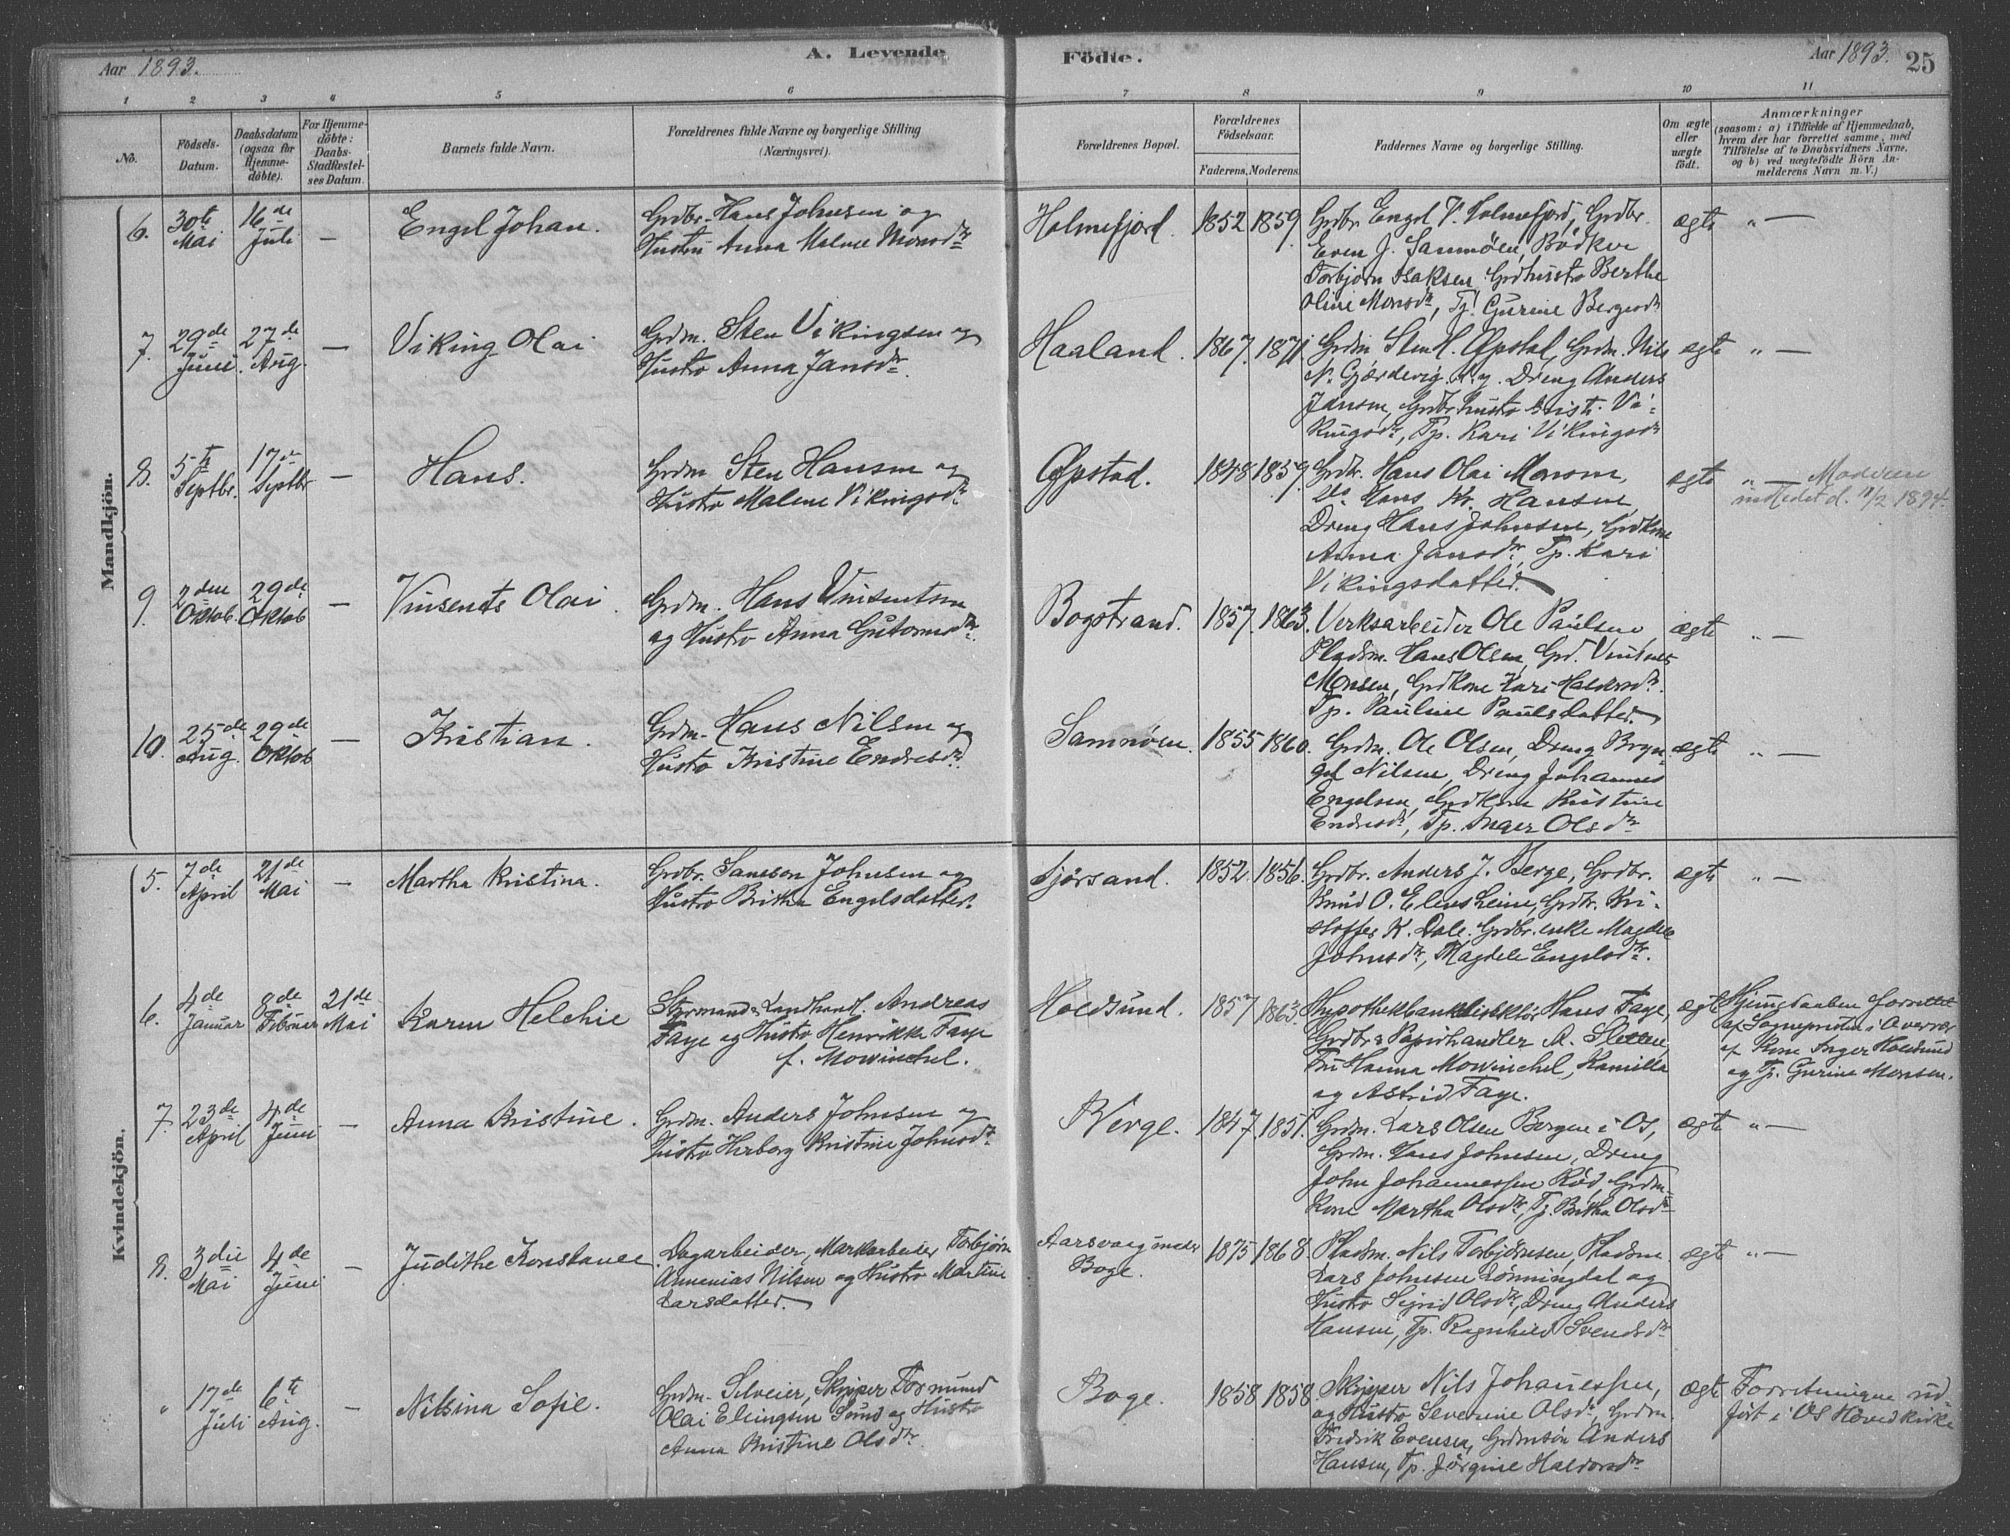 Aar 1893.
A. Levende
Födte.
Aar 1893.
25
1 2 3 4 5 6 7 8 9 10 11
No.
Födsels-
Datum.
Daabsdatum
(ogsaa for
Hjemme-
döbte).
For Hjemme-
döbte:
Daabs-
Stadfæstel-
ses Datum.
Barnets fulde Navn.
Forældrenes fulde Navne og borgerlige Stilling
(Næringsvei).
Forældrenes Bopæl.
Forældrenes
Födselsaar.
Faderens. Moderens.
Faddernes Navne og borgerlige Stilling.
Om ægte
eller
uægte
födt.
Anmærkninger
(saasom: a) i Tilfælde af Hjemmedaab,
hvem der har forrettet samme, med
Tilföielse af to Daabsvidners Navne,
og b) ved uægtefödte Börn An-
melderens Navn m. V.)
Mandkjön.
6.
30te
Mai
16de
Juli
—
Engel Johan.
Grdbr. Hans Johnsen og
Hustru Anna Malene Monsdtr
Holmefjord.
1852 1859.
Grdbr Engel V. Holmefjord, Grdbr.
Even J. Samnöen, Bödker
Torbjörn Isaksen, Grdhustro Berthe
Oline Monsdtr, Tj. Gurine Bergesdtr
ægte
" —
7.
29de
Juni
27de
Aug.
—
Viking Olai
Grdm. Sten Vikingsen og
Hustro Anna Jansdtr.
Haaland.
1867. 1871.
Grdm Sten H. Øpstad, Grdm. Nils
N. Gjærdevig. Dreng Anders
Jansen, Grdbrhustro Krist. Vi-
kingsdtr, Tp. Kari Vikingsdtr
ægte
" —
8.
5te
Septbr.
17de
Septbr
—
Hans.
Grdm Sten Hansen og
Hustro Malene Vikingsdtr.
Øpstad.
1848 1859.
Grdbr. Hans Olai Monsen,
do Hans Kr. Hansen,
Dreng Hans Johnsen, Grdkone
Anna Jansdtr, Tp. Kari
Vikingsdatter.
ægte
" — Moderen
indledet d. 11/2 1894.
9.
2den
Oktob.
29de
Oktob
—
Vinsents Olai.
Grdm. Hans Vinsentsen
og Hustro Anna Gutormsdtr.
Bogstrand.
1857. 1863.
Verksarbeider Ole Paulsen,
Pladsm. Hans Olsen, Grd. Vinsents
Monsen, Grdkone Kari Haldorsdtr.
Tp. Pauline Paulsdatter.
ægte
" —
10.
25de
Aug.
29de
Oktob
—
Kristian.
Grdm. Hans Nilsen og
Hustro Kristine Endresdtr.
Samnöen.
1855 1860.
Grdm. Ole Olsen, Dreng Bryn-
gel Nilsen, Dreng Johannes
Engelsen, Grdkone Kristine
Endresdtr, Tp. Inger Olsdtr
ægte
" —
Kvindekjön.
5.
7de
April
21de
Mai
—
Martha Kristina.
Grdbr. Samson Johnsen og
Hustro Britha Engelsdatter.
Sjörsand.
1852. 1856.
Grdbr. Anders J. Berge, Grdbr.
Knud O. Elensheim, Grdbr. Kri-
stoffer K. Dale. Grdbr. enke Magdele
Johnsdtr, Magdele Engelsdtr.
ægte
" —
6.
4de
Januar
8de
Februar
21de
Mai
Karen Helchie
Styrmand & Landhandl. Andreas
Faye og Hustro Henrikke Faye
f. Mowinchel.
Holdsund.
1857 1863.
Hypothekbankdirektör Hans Faye,
Grdbr & Papirhandler A. Sletten,
Fru Hanna Mowinchel, Kamilla
og Astrid Faye.
ægte
Hjemmedaaben forrettet
af Sognepresten i Overvær
af Kone Inger Holdsund
og Tp. Gurine Monsen.
7.
23de
April
4de
Juni
—
Anna Kristine.
Grdm. Anders Johnsen og
Hustro Herborg Kristine Johnsdtr.
Berge.
1847. 1851.
Grdm. Lars Olsen Bergen i Os,
Grdm. Hans Johnsen, Dreng
John Johannessen Röd, Grdm.
Kone Martha Olsdtr, Tj. Britha Olsdtr
ægte
" —
8.
3die
Mai
4de
Juni
—
Judithe Konstance.
Dagarbeider, Markarbeider Torbjörn
Annanias Nilsen og Hustro Martine
Larsdatter.
Aarsvaag under
Boge.
1875 1868.
Pladsm. Nils Torbjörnsen, Pladsm
Lars Johnsen Lönningdal og
Hustro Sigrid Olsdtr, Dreng Anders
Hansen, Tp. Ragnhild Svendsdtr
ægte
" —
"
17de
Juli
6te
Aug.
—
Nilsina Sofie.
Grdm. Selveier, Skipper Tormund
Olai Ellingsen Sund og Hustro
Anna Kristine Olsdtr.
Boge.
1858 1858
Skipper Nils Johanessen,
og Hustro Severine Olsdtr, Grdm.
Fredrik Evensen, Grdmsön Anders
Hansen, Tp. Jörgine Haldorsdtr
ægte
Forretningen ud-
fört i Os Hovedkirke